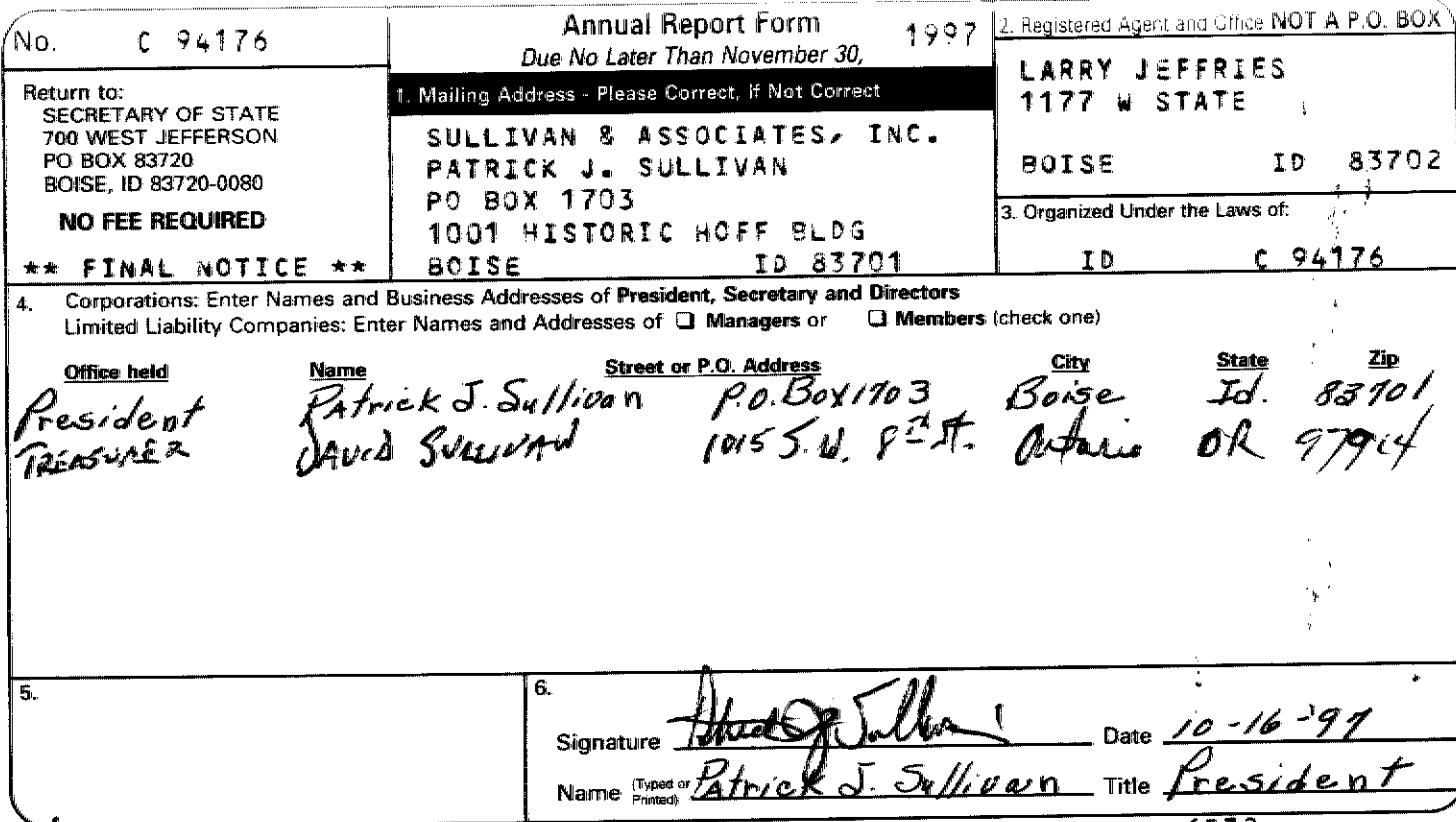 No. C 94176
Return to:
SECRETARY OF STATE
700 WEST JEFFERSON
PO BOX 83720
BOISE, ID 83720-0080
NO FEE REQUIRED
** FINAL NOTICE **
Annual Report Form 1997
Due No Later Than November 30,
1. Mailing Address - Please Correct, If Not Correct
SULLIVAN & ASSOCIATES, INC.
PATRICK J. SULLIVAN
PO BOX 1703
1001 HISTORIC HOFF BLDG
BOISE ID 83701
2. Registered Agent and Office NOT A P.O. BOX
LARRY JEFFRIES
1177 W STATE
BOISE ID 83702
3. Organized Under the Laws of:
ID C 94176
4. Corporations: Enter Names and Business Addresses of President, Secretary and Directors
Limited Liability Companies: Enter Names and Addresses of ❑ Managers or ❑ Members (check one)
Office held Name Street or P.O. Address City State Zip
President Patrick J. Sullivan P.O. Box 1703 Boise Id. 83701
TREASURER DAVID SULLIVAN 1015 S.W. St. Ontario OR 97914
5.
6.
Signature Date 10-16-97
Name (Typed or Printed) Patrick J. Sullivan Title President